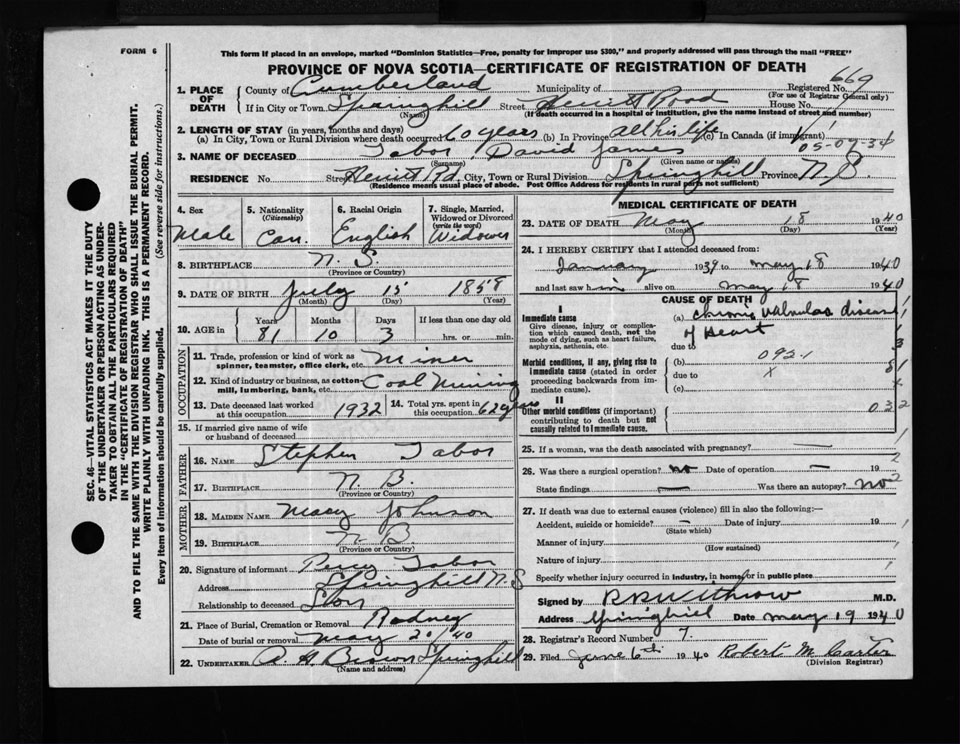 FORM 6
This form if placed in an envelope, marked "Dominion Statistics—Free, penalty for improper use $300," and properly addressed will pass through the mail "FREE"
PROVINCE OF NOVA SCOTIA—CERTIFICATE OF REGISTRATION OF DEATH
669
1. PLACE OF DEATH County of Cumberland Municipality of Registered No.
(For use of Registrar General only)
If in City or Town Springhill Street Herritt Road House No.
(Name) (If death occurred in a hospital or institution, give the name instead of street and number)
2. LENGTH OF STAY (in years, months and days)
(a) In City, Town or Rural Division where death occurred 60 years (b) In Province all his life In Canada (if immigrant)
05-07-34
3. NAME OF DECEASED Tabor, David James
(Surname) (Given name or names)
RESIDENCE No. Street Herritt Rd. City, Town or Rural Division Springhill Province N.S.
(Residence means usual place of abode. Post Office Address for residents in rural parts not sufficient)
4. Sex Male
5. Nationality (Citizenship) Can.
6. Racial Origin English
7. Single, Married, Widowed or Divorced (write the word) Widower
8. BIRTHPLACE N. S.
(Province or Country)
9. DATE OF BIRTH July 15 1858
(Month) (Day) (Year)
10. AGE in Years 81 Months 10 Days 3 If less than one day old hrs. or min.
OCCUPATION
11. Trade, profession or kind of work as spinner, teamster, office clerk, etc. Miner
12. Kind of industry or business, as cotton-mill, lumbering, bank, etc. Coal Mining
13. Date deceased last worked at this occupation 1932
14. Total yrs. spent in this occupation 62 years
15. If married give name of wife or husband of deceased
FATHER
16. NAME Stephen Tabor
17. BIRTHPLACE N. B.
(Province or Country)
MOTHER
18. MAIDEN NAME Mary Johnson
19. BIRTHPLACE N B
(Province or Country)
20. Signature of informant Percy Tabor
Address Springhill N.S
Relationship to deceased Son
21. Place of Burial, Cremation or Removal Rodney
Date of burial or removal May 20/40
22. UNDERTAKER A. H. Brown Springhill
(Name and address)
MEDICAL CERTIFICATE OF DEATH
23. DATE OF DEATH May 18 1940
(Month) (Day) (Year)
24. I HEREBY CERTIFY that I attended deceased from:
January 1939 to May 18 1940
and last saw him alive on May 18 1940
CAUSE OF DEATH
Immediate cause (a) Chronic Valvular disease
Give disease, injury or complication which caused death, not the mode of dying, such as heart failure, asphyxia, asthenia, etc.
of Heart
due to
Morbid conditions, if any, giving rise to immediate cause (stated in order proceeding backwards from immediate cause).
(b) 092.1
due to X
(c)
II
Other morbid conditions (if important) contributing to death but not causally related to immediate cause.
032
25. If a woman, was the death associated with pregnancy? —
26. Was there a surgical operation? no Date of operation — 19
State findings — Was there an autopsy? no
27. If death was due to external causes (violence) fill in also the following:—
Accident, suicide or homicide? — Date of injury 19
(State which)
Manner of injury
(How sustained)
Nature of injury
Specify whether injury occurred in industry, in home, or in public place
Signed by R B Withrow M.D.
Address Springhill Date May 19 1940
28. Registrar's Record Number 7.
29. Filed June 6th 1940 Robert M. Carter
(Division Registrar)
SEC. 46—VITAL STATISTICS ACT MAKES IT THE DUTY
OF THE UNDERTAKER OR PERSON ACTING AS UNDER-
TAKER TO OBTAIN ALL THE PARTICULARS REQUIRED
IN THE "CERTIFICATE OF REGISTRATION OF DEATH"
AND TO FILE THE SAME WITH THE DIVISION REGISTRAR WHO SHALL ISSUE THE BURIAL PERMIT.
WRITE PLAINLY WITH UNFADING INK. THIS IS A PERMANENT RECORD.
Every item of information should be carefully supplied. (See reverse side for instructions.)